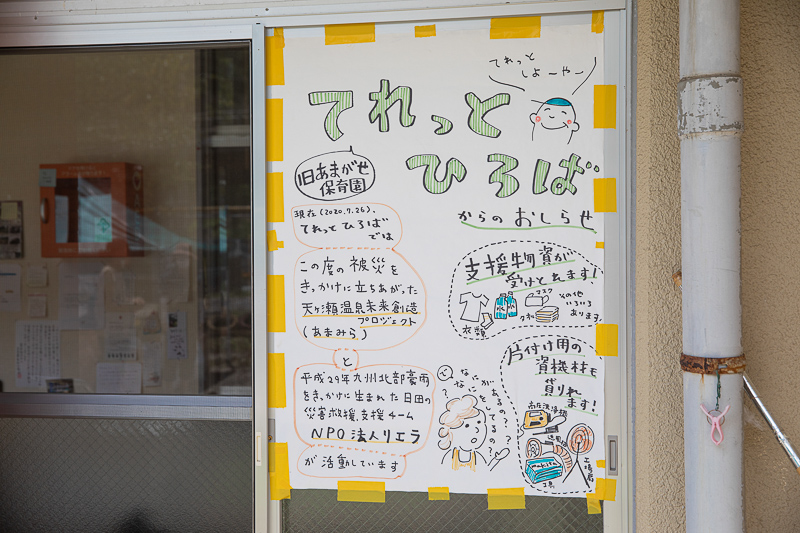 てれっと
しよーやー
てれっと
ひろば
旧あまがせ
保育園
からのおしらせ
現在(2020.7.26)、
てれっとひろば
では
この度の被災を
きっかけに立ちあがった
天ヶ瀬温泉未来創造
プロジェクト
(あまみら)
と
平成29年九州北部豪雨
をきっかけに生まれた日田の
災害救援、支援チーム
NPO法人リエラ
が活動しています
支援物資が
受けとれます!
マスク
水
水
衣類
タオル
その他
いろいろ
あります。
なにがあるの?
なにをしてるの?
片付け用の
資機材も
貸りれ
ます!
高圧洗浄機
送風機
工場扇
makita
工具